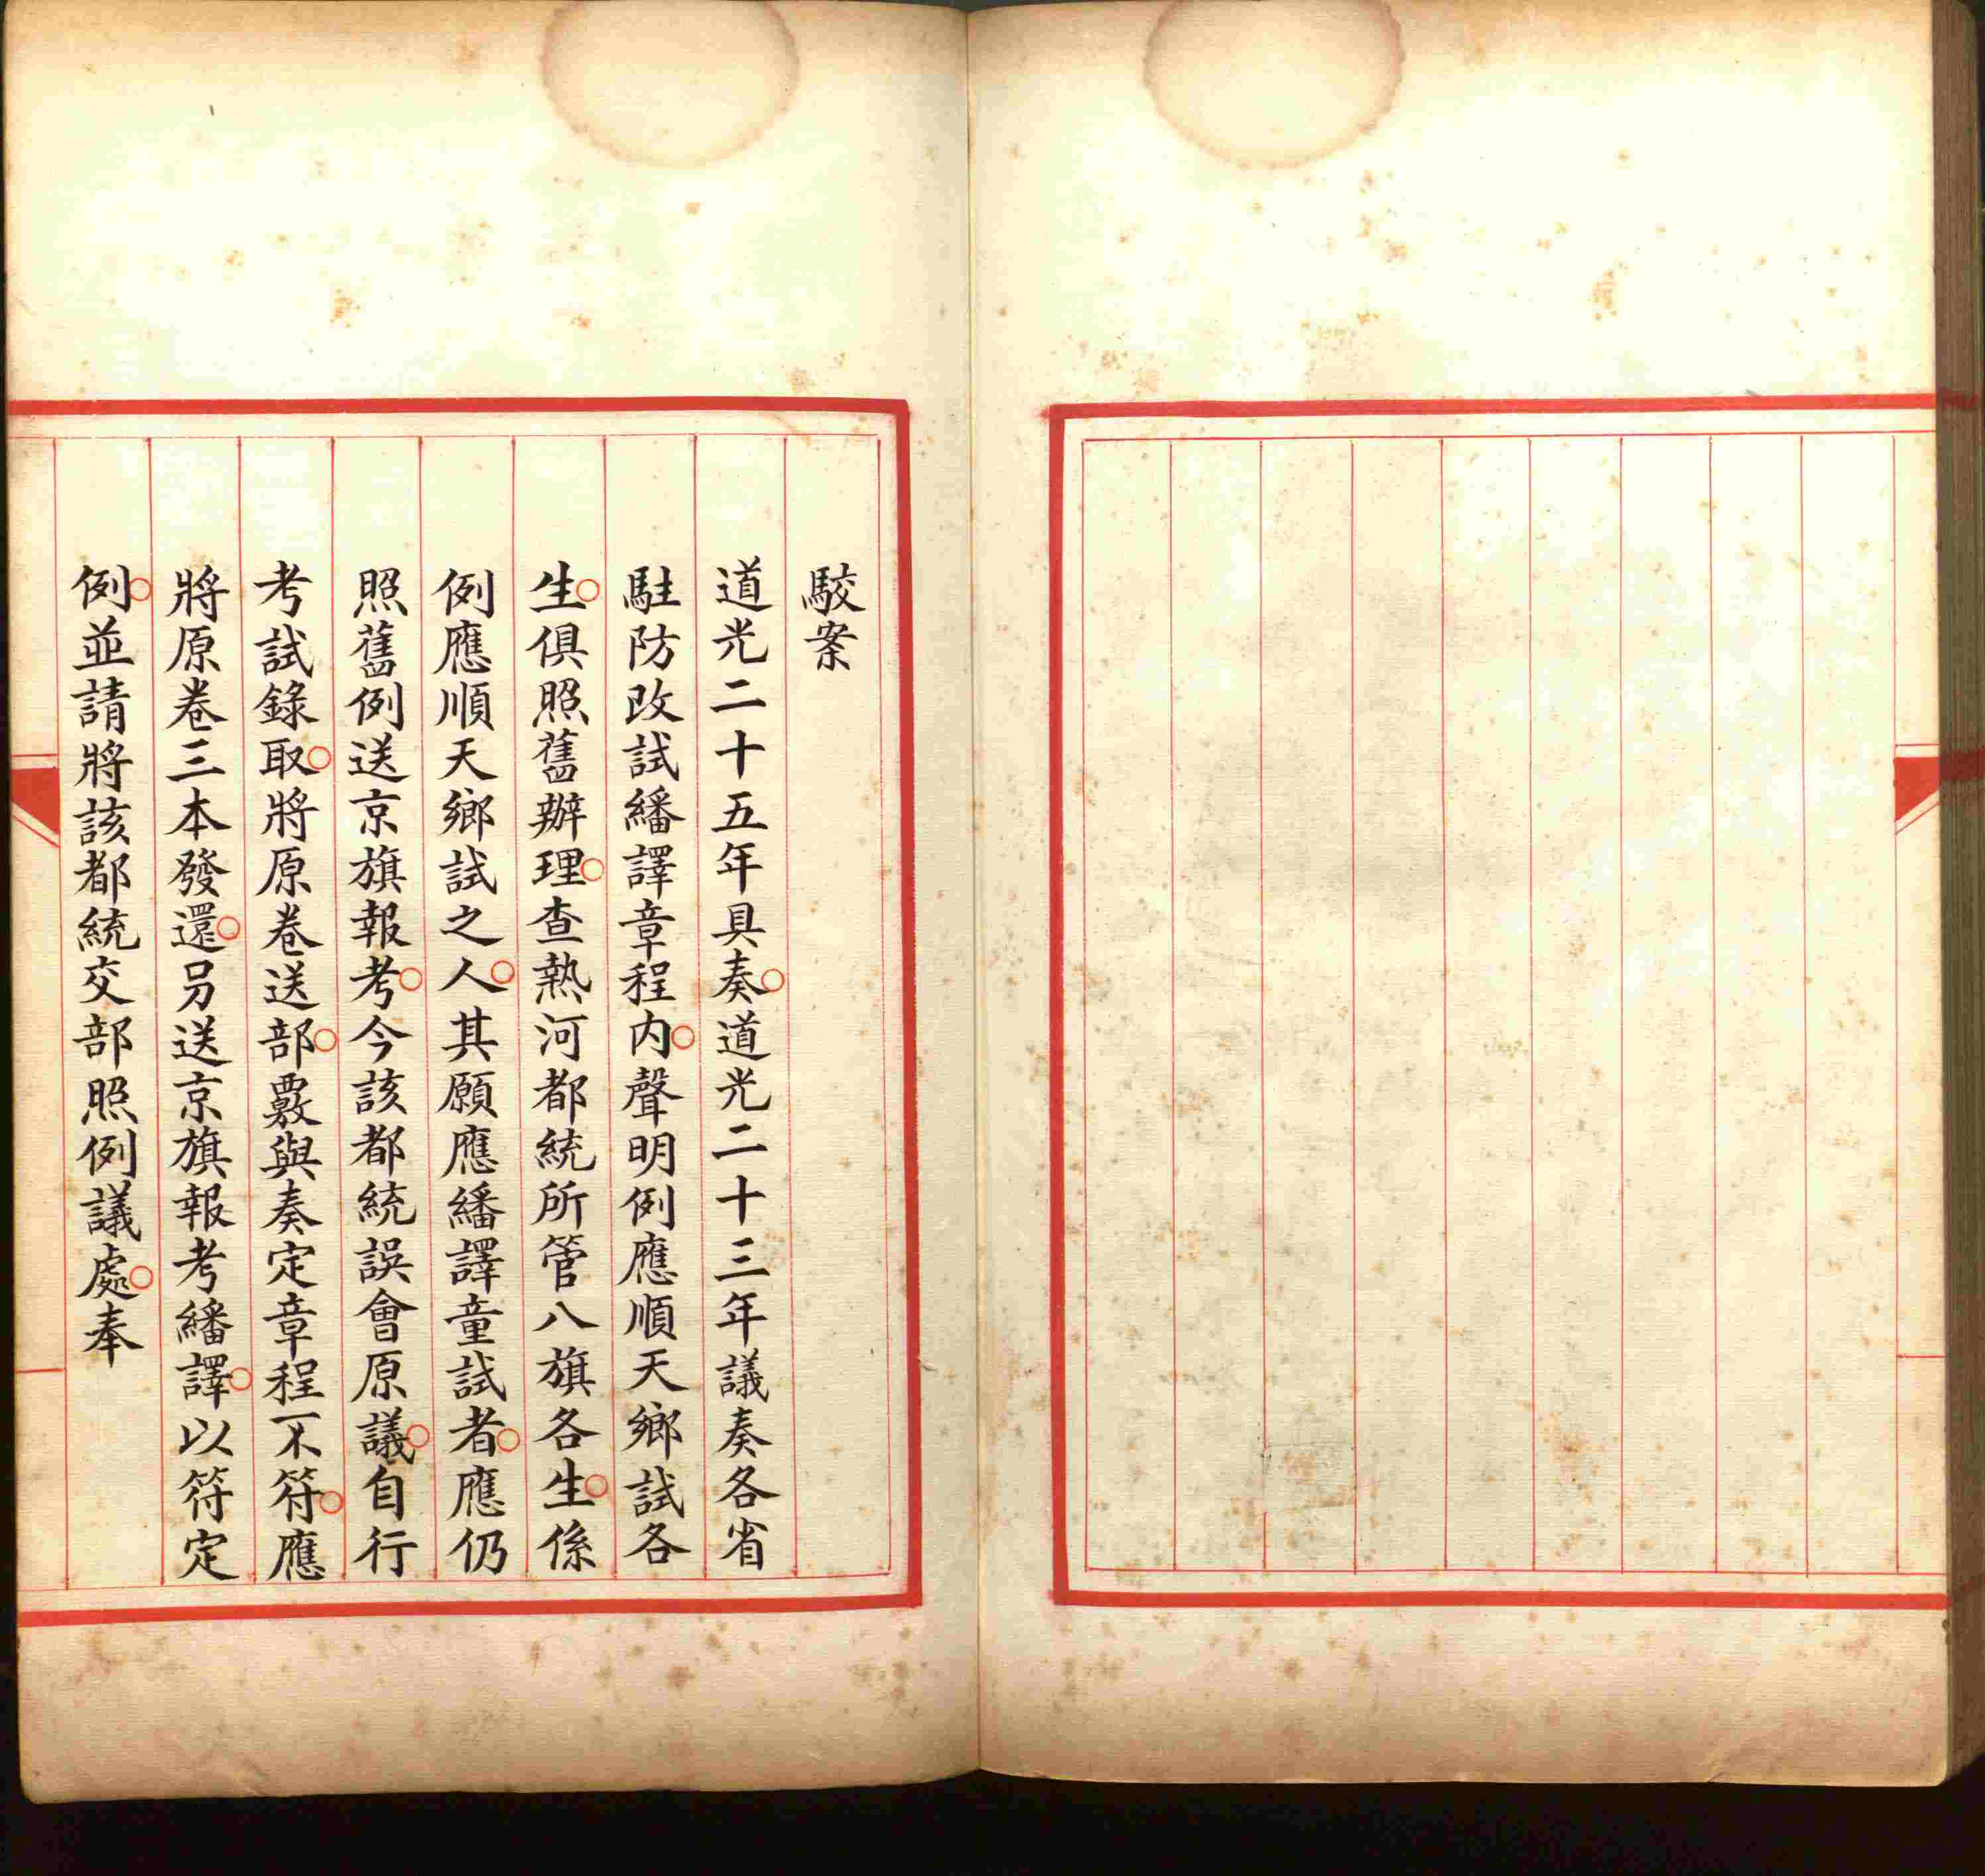 駮案
道光二十五年具奏○道光二十三年議奏各省
駐防改試繙譯章程内○聲明例應順天鄉試各
生○俱照舊辦理○查熱河都統所管八旗各生○係
例應順天鄉試之人○其願應繙譯童試者○應仍
照舊例送京旗報考○今該都統誤會原議○自行
考試錄取○將原卷送部○覈與奏定章程不符○應
將原卷三本發還○另送京旗報考繙譯○以符定
例○並請將該都統交部照例議處○奉